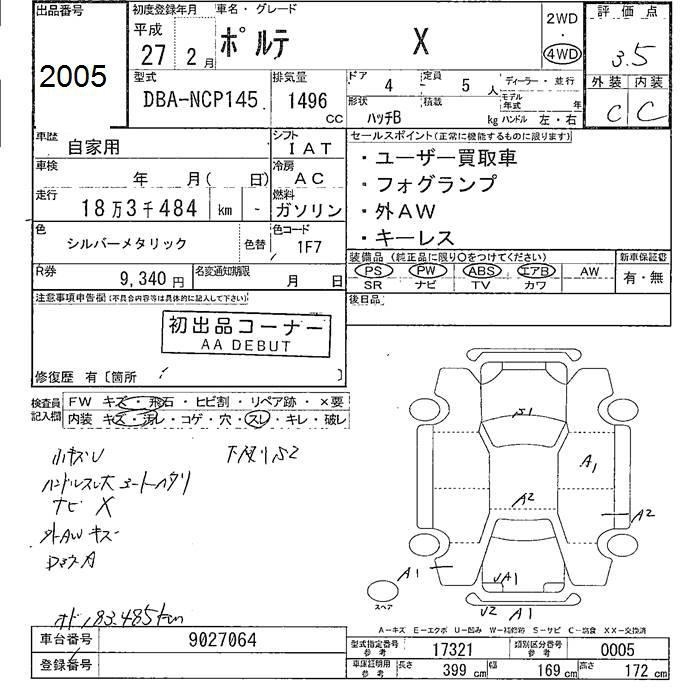 出品番号 初度登録年月 車名・グレード 評価点
2005 平成 27年 2月 ポルテ X 2WD ・ 4WD 3.5
型式 排気量 ドア 4 定員 5人 ディーラー・並行 外装 内装
DBA-NCP145 1496 CC 形状 ハッチB 積載 kg モデル年式 年 ハンドル 左・右 C C
車歴 自家用 シフト IAT セールスポイント(正常に機能するものに限ります)
車検 年 月( 日) 冷房 AC ・ユーザー買取車
走行 18万3千484 km - 燃料 ガソリン ・フォグランプ
・外AW
・キーレス
色 シルバーメタリック 色替 色コード 1F7
装備品 (純正品に限り〇をつけてください) 新車保証書
R券 9,340円 名変通知期限 月 日 PS PW ABS エアB AW 有・無
SR ナビ TV カワ
注意事項申告欄(不具合内容等は具体的に記入して下さい) 後日品
初出品コーナー
AA DEBUT
修復歴 有〔箇所 〕
検査員記入欄 FW キズ・飛石・ヒビ割・リペア跡・×要
内装 キズ・汚レ・コゲ・穴・スレ・キレ・破レ
小キズU 下廻りS2
ハンドルスレ大 シートヘタリ
ナビ X
外AW キズ
S1
A1
A2
A2
A1
UA1
スペア
U2 A1
オド183.485km
A-キズ E-エクボ U-凹み W-補修跡 S-サビ C-腐食 XX-交換済
車台番号 9027064 型式指定番号 参考 17321 類別区分番号 参考 0005
登録番号 車庫証明用 参考 長さ 399 cm 幅 169 cm 高さ 172 cm